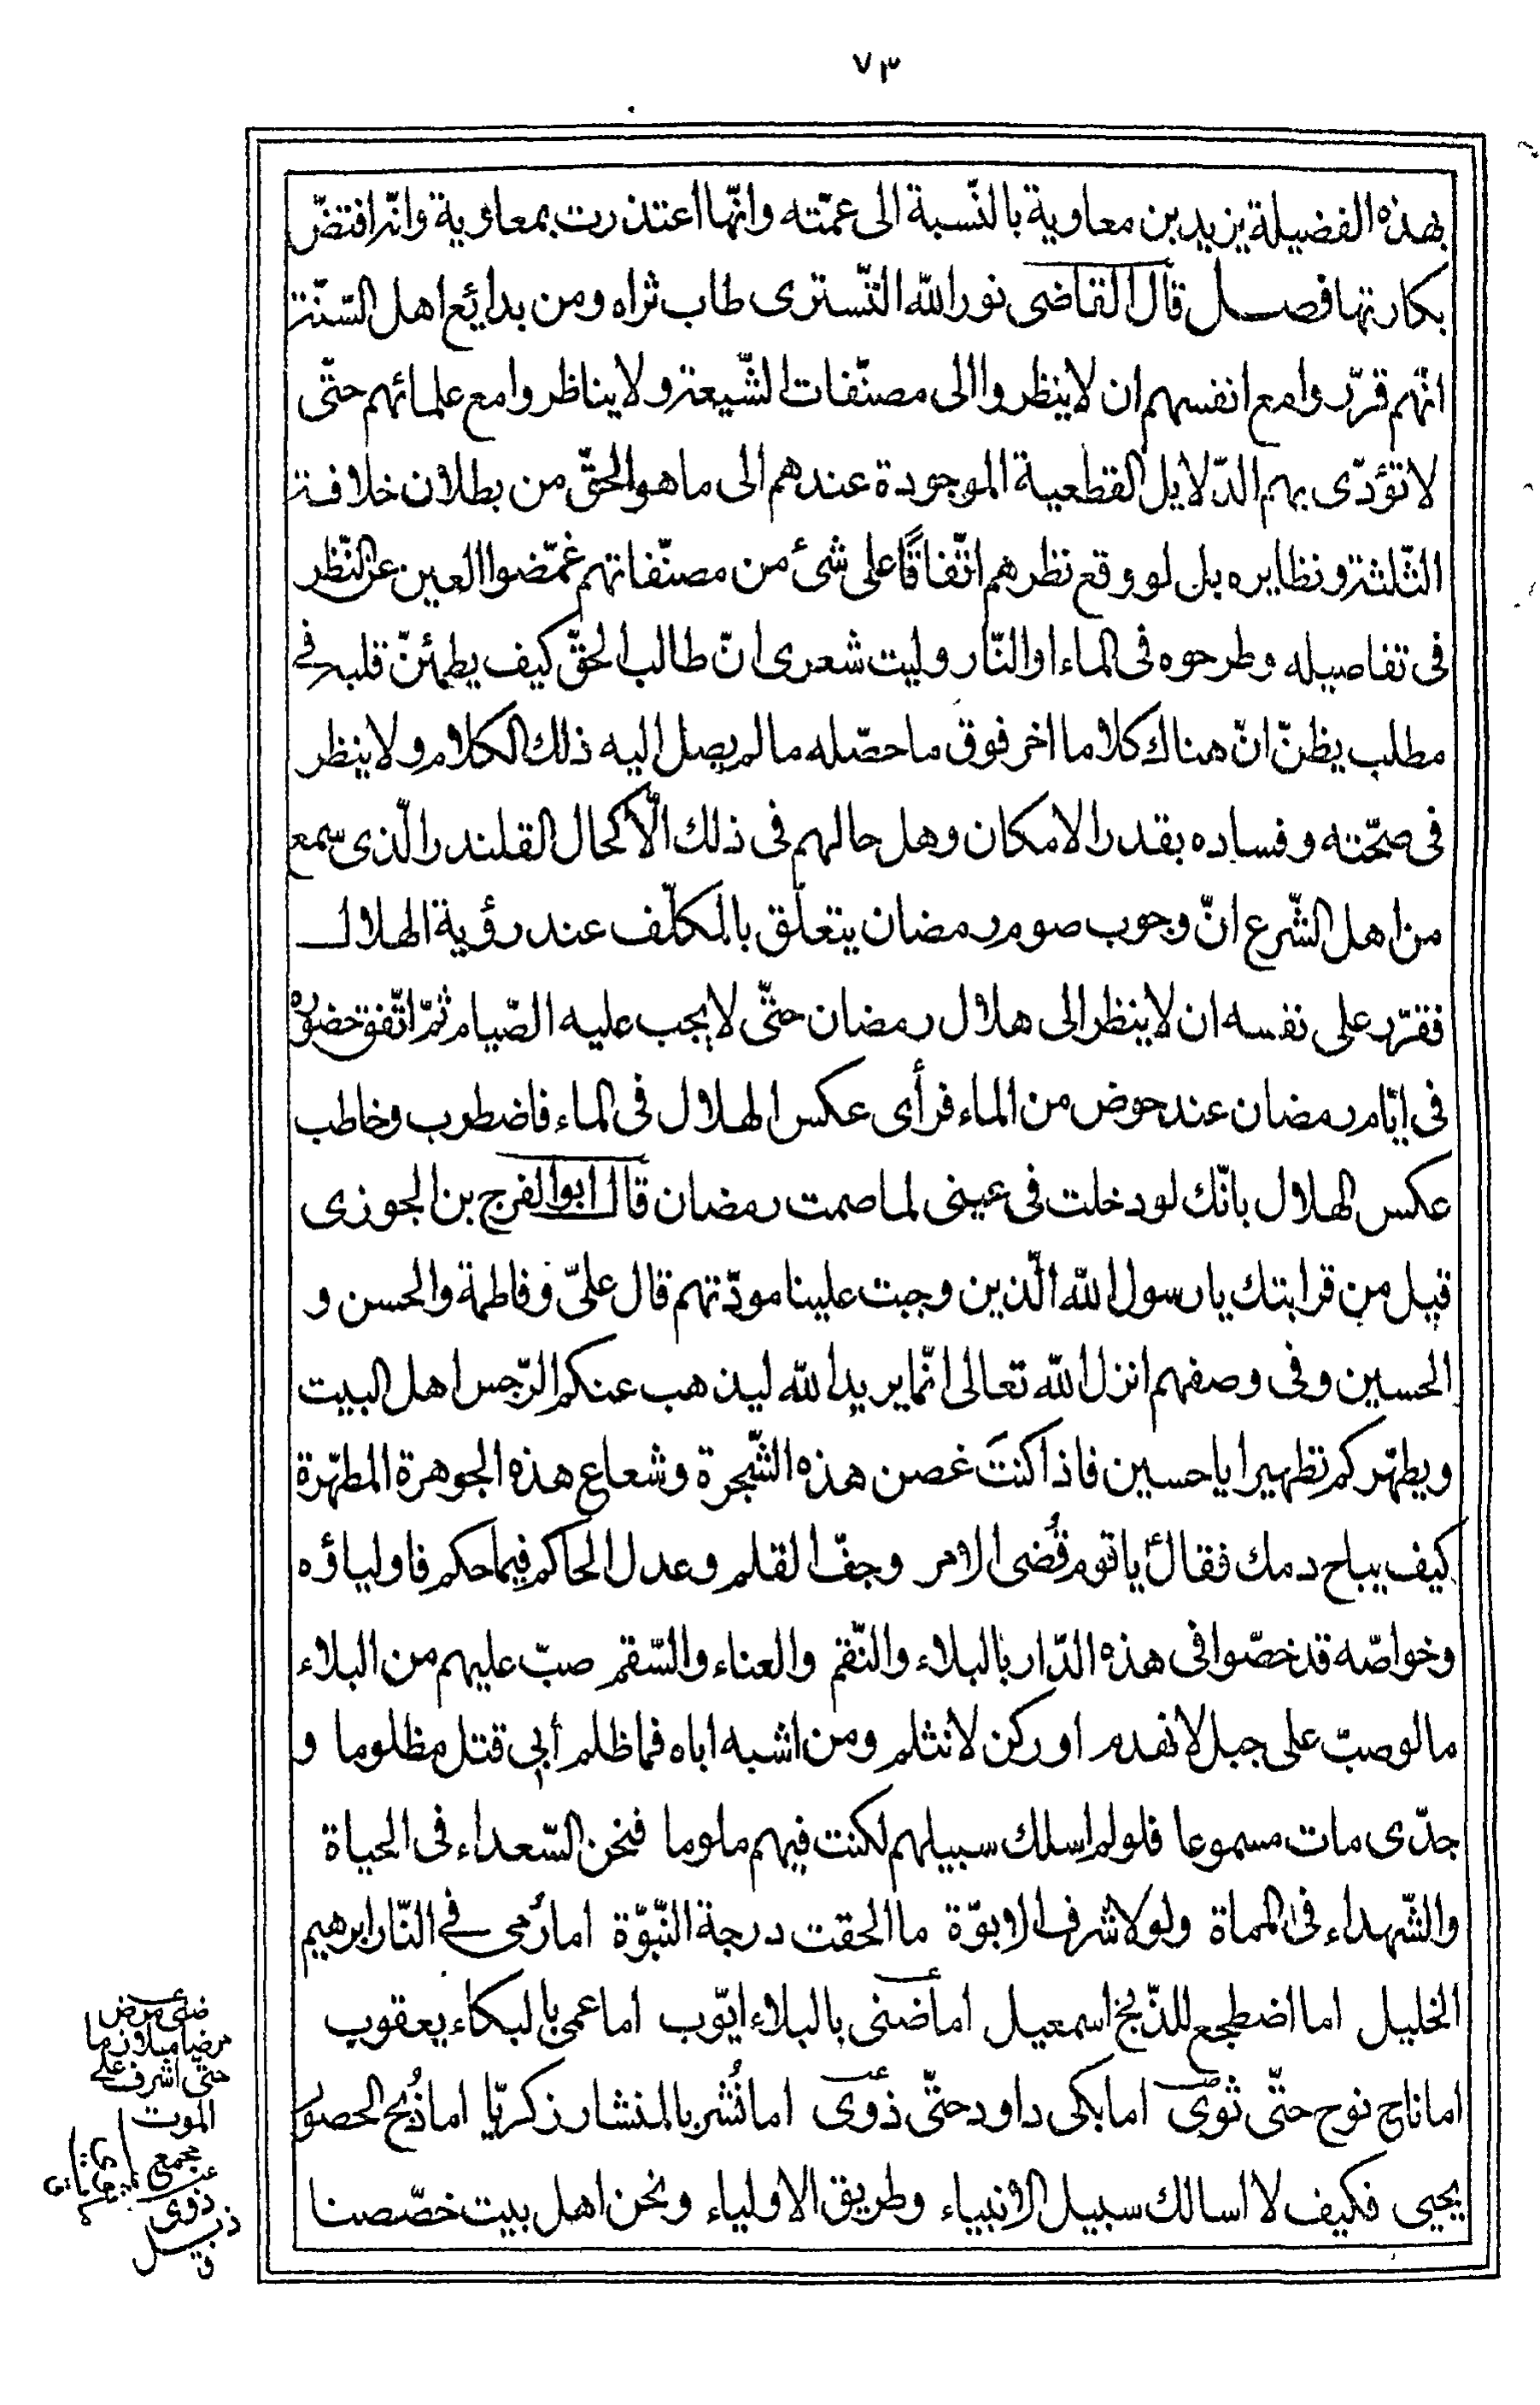 ٧٣
بهذه الفضيلة يزيد بن معاوية بالنّسبة الى عمّته وانّها اعتذرت بمعاوية وانّه افتضّ
بكارتها فصل قال القاضى نور الله التّسترى طاب ثراه ومن بدايع اهل السّنّة
انّهم قرّروا مع انفسهم ان لا ينظروا الى مصنّفات الشّيعة ولا يناظروا مع علمائهم حتّى
لا تؤدّى بهم الدّلايل القطعية الموجودة عندهم الى ما هو الحقّ من بطلان خلافة
الثّلثة ونظايره بل لو وقع نظرهم اتّفاقًا على شئ من مصنّفاتهم غمّضوا العين عن النّظر
فى تفاصيله وطرحوه فى الماء او النّار وليت شعرى انّ طالب الحقّ كيف يطمئنّ قلبه فى
مطلب يظنّ انّ هناك كلاما اخر فوق ما حصّله ما لم يصل اليه ذلك الكلام ولا ينظر
فى صحّته وفساده بقدر الامكان وهل حالهم فى ذلك الّا كحال القلندر الّذى سمع
من اهل الشّرع انّ وجوب صوم رمضان يتعلّق بالمكلّف عند رؤية الهلال
فقرّر على نفسه ان لا ينظر الى هلال رمضان حتّى لا يجب عليه الصّيام ثمّ اتّفق حضوره
فى ايّام رمضان عند حوض من الماء فرأى عكس الهلال فى الماء فاضطرب وخاطب
عكس الهلال بانّك لو دخلت فى عينى لما صمت رمضان قال ابو الفرج بن الجوزى
قيل من قرابتك يا رسول الله الّذين وجبت علينا مودّتهم قال علىّ وفاطمة والحسن و
الحسين وفى وصفهم انزل الله تعالى انّما يريد الله ليذهب عنكم الرّجس اهل البيت
ويطهّركم تطهيرا يا حسين فاذا كنتَ غصن هذه الشّجرة وشعاع هذه الجوهرة المطهّرة
كيف يباح دمك فقال يا قوم قُضى الامر وجفّ القلم وعدل الحاكم فيما حكم فاولياؤه
وخواصّه قد خصّوا فى هذه الدّار بالبلاء والنّقم والعناء والسّقم صبّ عليهم من البلاء
ما لو صبّ على جبل لانهدم او ركن لانثلم ومن اشبه اباه فما ظلم أبى قتل مظلوما و
جدّى مات مسموما فلو لم اسلك سبيلهم لكنت فيهم ملوما فنحن السّعداء فى الحياة
والشّهداء فى المماة ولولا شرف الابوّة ما الحقت درجة النّبوّة اما رُمى فى النّار ابرهيم
الخليل اما اضطجع للذّبح اسمعيل اما ضنى بالبلاء ايّوب اما عمى بالبكاء يعقوب
اما ناح نوح حتّى ثوى اما بكى داود حتّى ذوى اما نُشر بالمنشار زكريّا اما ذُبح الحصور
يحيى فكيف لا اسالك سبيل الانبياء وطريق الاولياء ونحن اهل بيت خصّصنا
ضنى مرض
مرضا ملازما
حتّى اشرف على
الموت
مجمع
ذوى
ذبل
ق